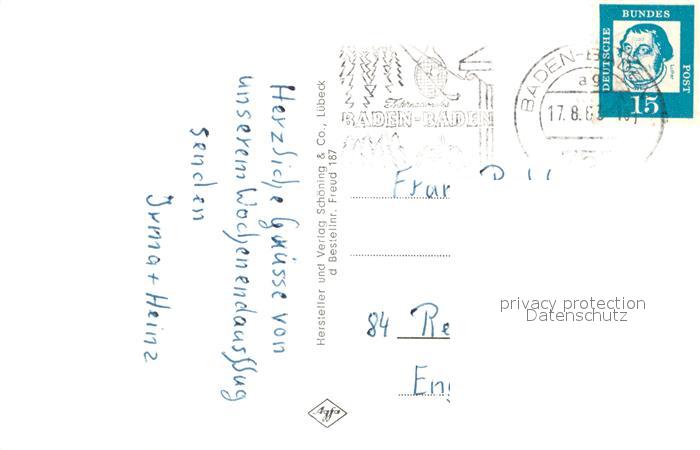 Herzliche Grüsse von
unserem Wochenendausflug
senden
Irma + Heinz
Hersteller und Verlag Schöning & Co., Lübeck
d Bestellnr. Freud 187
BADEN-BADEN
BADEN-B
ag
17.8.6
DEUTSCHE
BUNDES
POST
Luther
15
Frau
84 Re
privacy protection
Datenschutz